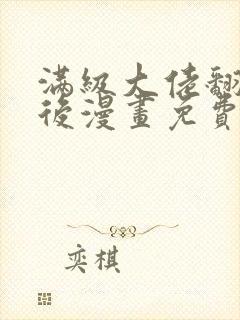 滿級大佬翻
後漫畫免費
奕棋